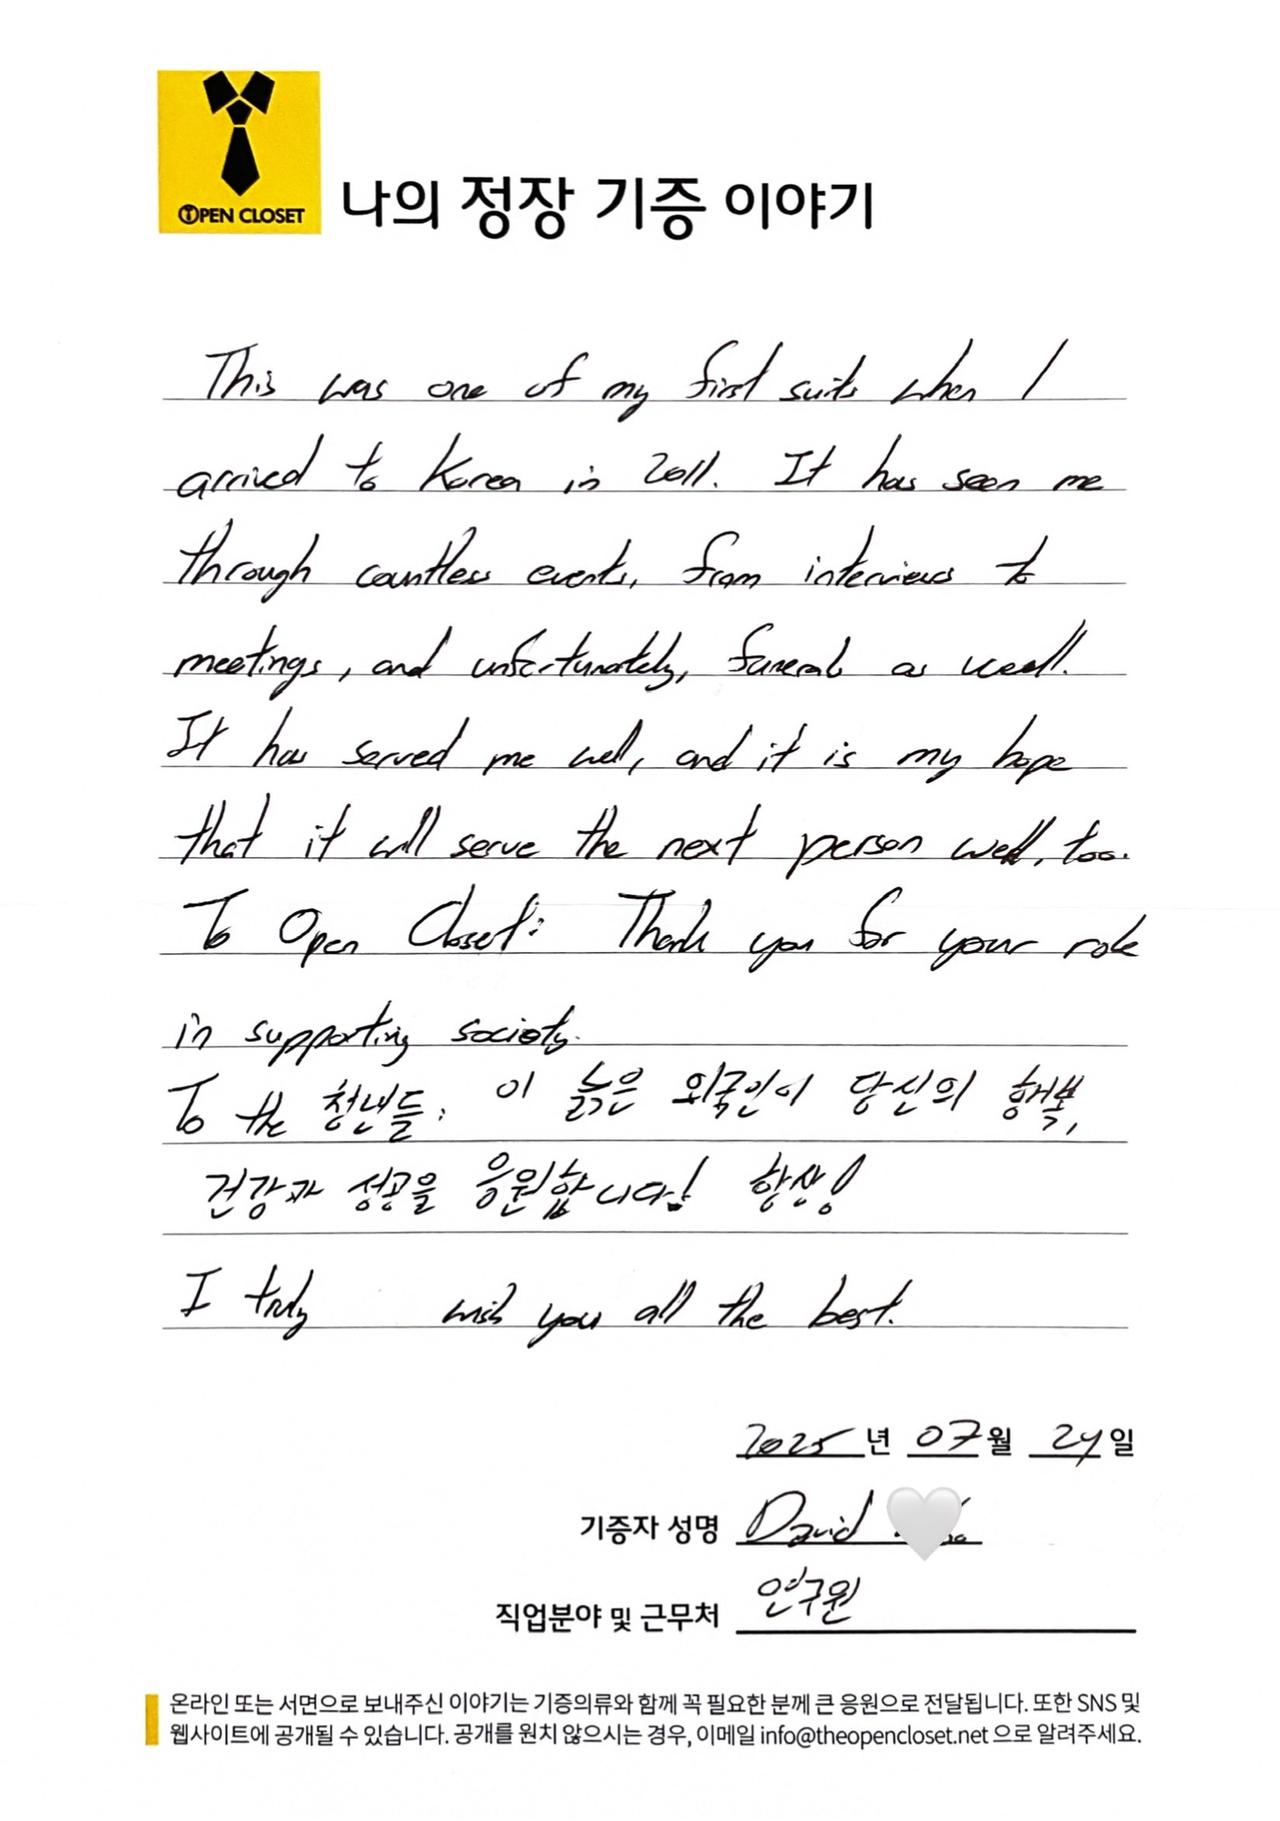 OPEN CLOSET
나의 정장 기증 이야기
This was one of my first suits when I
arrived to Korea in 2011. It has seen me
through countless events, from interviews to
meetings, and unfortunately, funerals as well.
It has served me well, and it is my hope
that it will serve the next person well, too.
To Open Closet: Thank you for your role
in supporting society.
To the 청년들: 이 늙은 외국인이 당신의 행복,
건강과 성공을 응원합니다! 항상!
I truly wish you all the best.
2025년 07월 24일
기증자 성명 David
직업분야 및 근무처 연구원
온라인 또는 서면으로 보내주신 이야기는 기증의류와 함께 꼭 필요한 분께 큰 응원으로 전달됩니다. 또한 SNS 및
웹사이트에 공개될 수 있습니다. 공개를 원치 않으시는 경우, 이메일 info@theopencloset.net 으로 알려주세요.